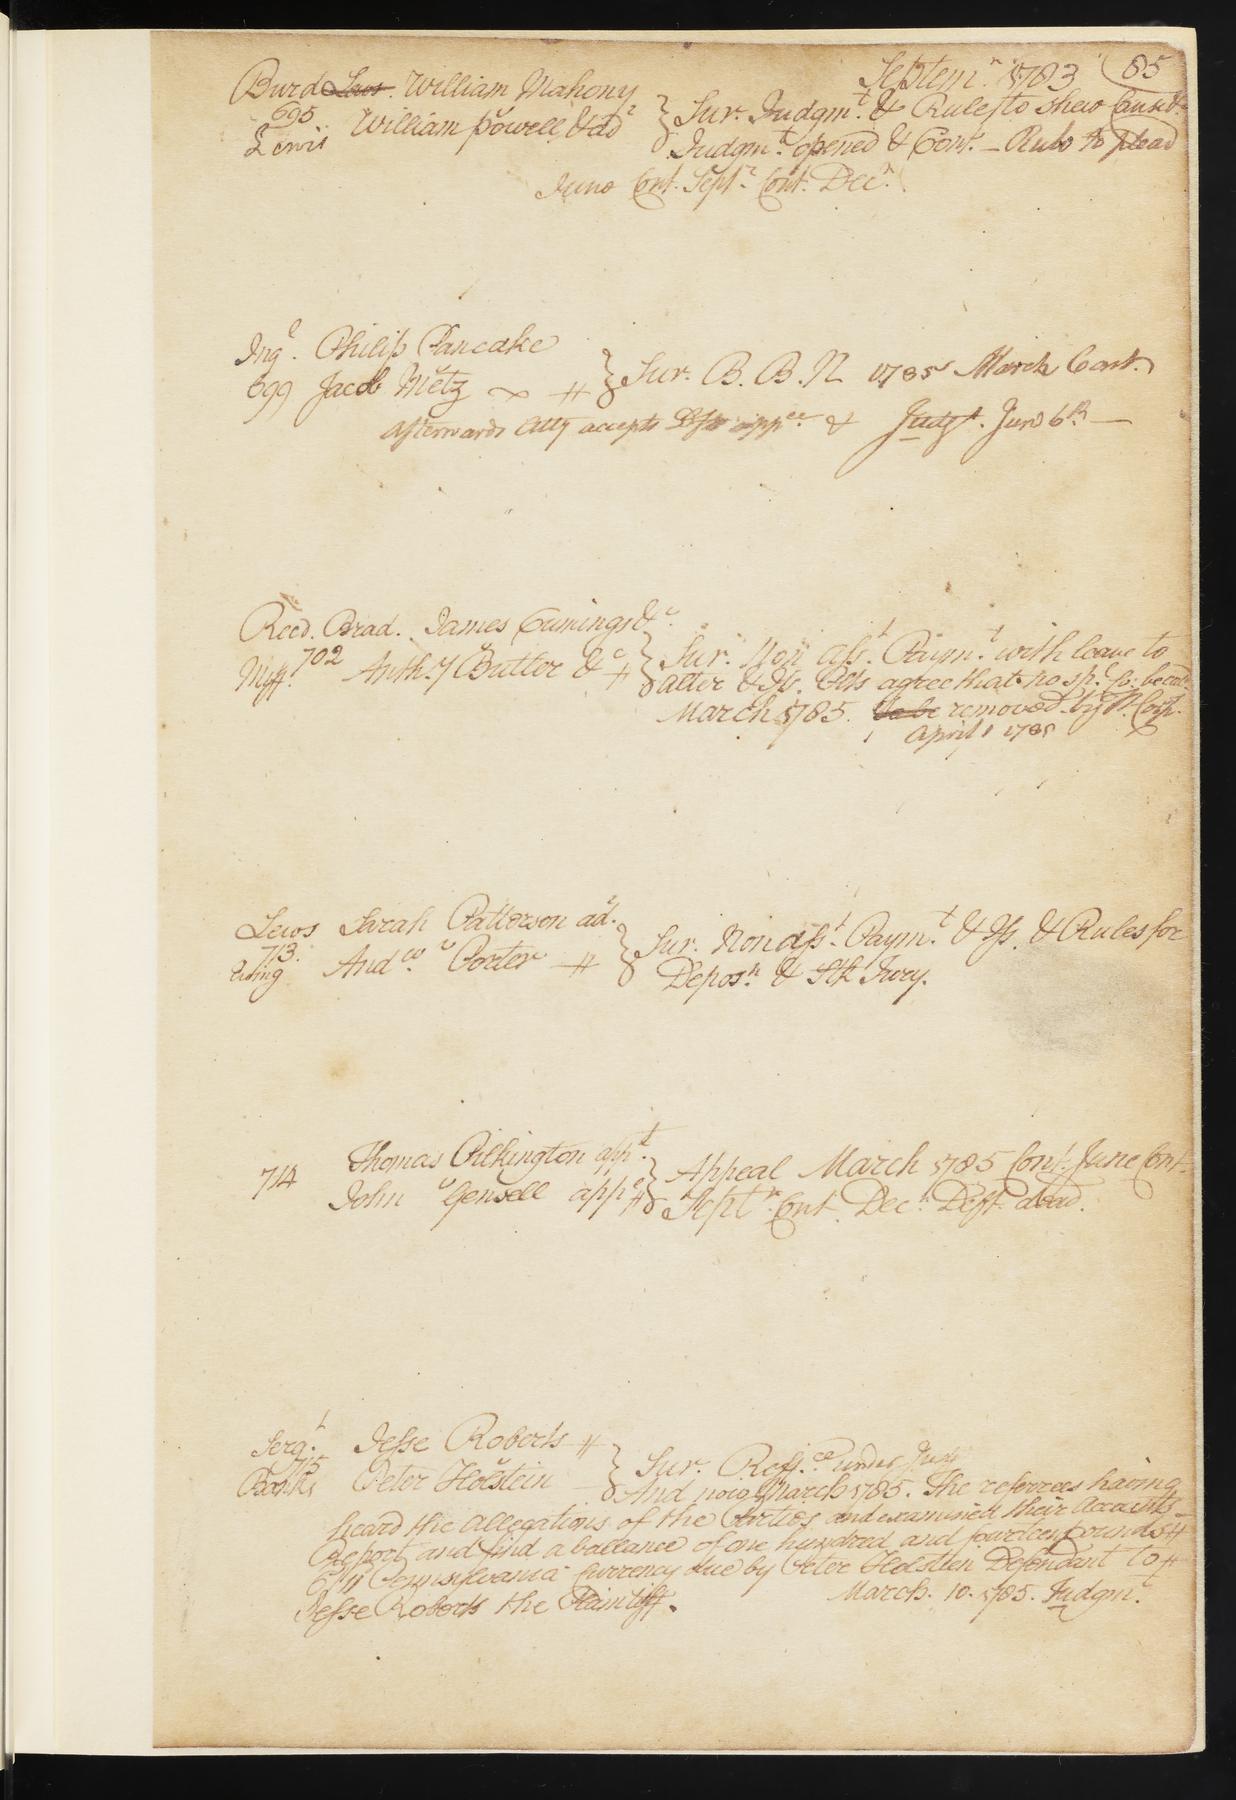 Septemr 1783 85
Burd Lews. William Mahony
695 v
Lewis William Powell &ad
Sur. Judgmt. & Rules to shew Cause
Judgmt. opened & Cont. — Rule to plead
June Cont. Septr. Cont. Decr.
Ingl. Philip Pancake
v
699 Jacob Metz
Sur. B. B. N 1785 March Cont.
afterwards Atty accepts appce. & Judgt. Jun 6th —
Reed. Brad. James Cumings &c.
702 v
Miff. Anthy Butler &c
Sur. Non asst. Paymt. with leave to
alter & Is. Atts agree that no sp.
March 1785. To be removed by
April 1785
Lews Sarah Patterson ad.
713. v
Ewing Andw. Porter
Sur. Non asst. Paymt. & Is. & Rules for
Deposn & Stk Jury.
Thomas Pilkington appt.
714 v
John Gensell appe
Appeal March 1785 Cont. June Cont.
Septr. Cont. Decr. Deft. dead.
Sergt. Jesse Roberts
715 v
Bank Peter Holstein
Sur. Reffce. under Jud
And now March 1785. The referrees having
heard the allegations of the Parties and examined their accounts
Report and find a ballance of one hundred and fourteen pounds
6/11 Pennsylvania currency due by Peter Holstein Defendant to
Jesse Roberts the Plaintiff. March. 10. 1785. Judgmt.